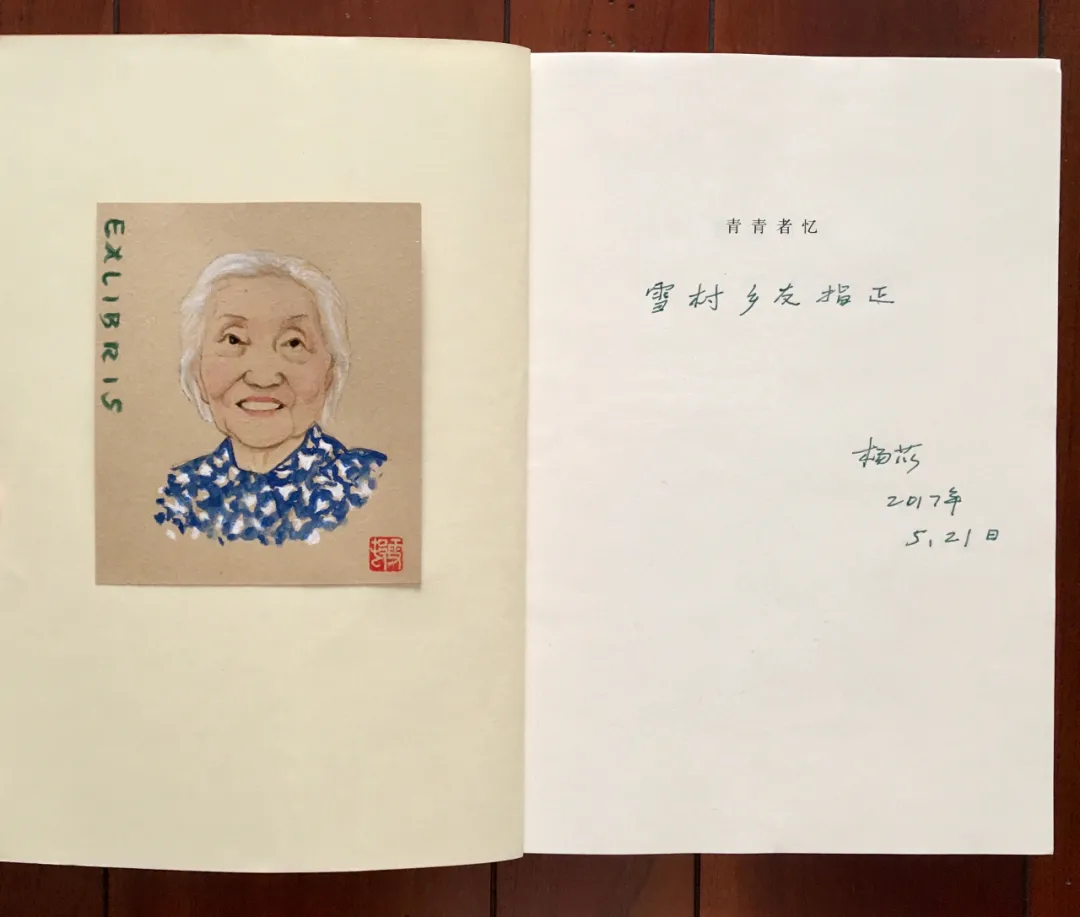 EXLIBRIS
青青者忆
雪村乡友指正
杨苡
2017年
5.21日